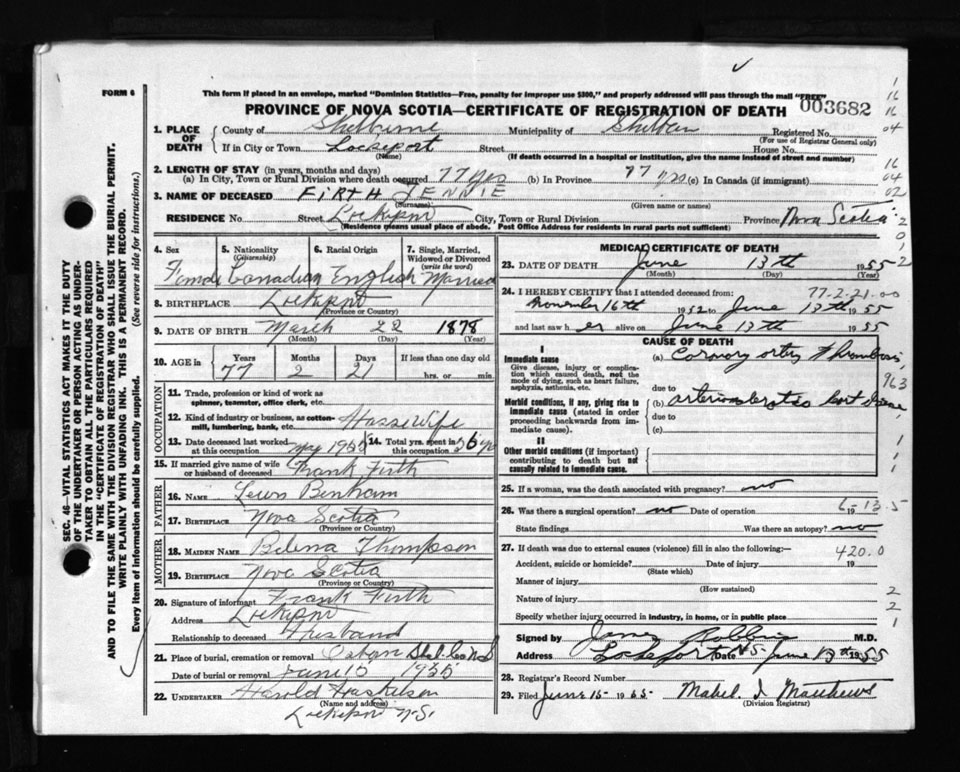 FORM 6
This form if placed in an envelope, marked "Dominion Statistics—Free, penalty for improper use $300," and properly addressed will pass through the mail "FREE"
PROVINCE OF NOVA SCOTIA—CERTIFICATE OF REGISTRATION OF DEATH
003682
1. PLACE OF DEATH { County of Shelburne Municipality of Registered No.
(For use of Registrar General only)
If in City or Town Lockeport Street House No.
(Name) (If death occurred in a hospital or institution, give the name instead of street and number)
2. LENGTH OF STAY (in years, months and days)
(a) In City, Town or Rural Division where death occurred 77 yrs (b) In Province 77 yrs (c) In Canada (if immigrant)
3. NAME OF DECEASED FIRTH JENNIE
(Surname) (Given name or names)
RESIDENCE No Street Lockeport City, Town or Rural Division Province Nova Scotia
(Residence means usual place of abode. Post Office Address for residents in rural parts not sufficient)
4. Sex 5. Nationality (Citizenship) 6. Racial Origin 7. Single, Married, Widowed or Divorced (write the word)
Female Canadian English Married
8. BIRTHPLACE Lockeport
(Province or Country)
9. DATE OF BIRTH March 22 1878
(Month) (Day) (Year)
10. AGE in { Years Months Days If less than one day old
77 2 21 hrs. or min.
OCCUPATION
11. Trade, profession or kind of work as spinner, teamster, office clerk, etc.
12. Kind of industry or business, as cotton-mill, lumbering, bank, etc. House Wife
13. Date deceased last worked at this occupation May 1955 14. Total yrs. spent in this occupation 56 yrs
15. If married give name of wife or husband of deceased Frank Firth
FATHER
16. NAME Lewis Benham
17. BIRTHPLACE Nova Scotia
(Province or Country)
MOTHER
18. MAIDEN NAME Thompson
19. BIRTHPLACE Nova Scotia
(Province or Country)
20. Signature of informant Frank Firth
Address Lockeport
Relationship to deceased Husband
21. Place of burial, cremation or removal Shel. Co N S
Date of burial or removal June 15 1955
22. UNDERTAKER Harold
(Name and address)
Lockeport N.S.
MEDICAL CERTIFICATE OF DEATH
23. DATE OF DEATH June 13th 1955
(Month) (Day)
24. I HEREBY CERTIFY that I attended deceased from: 77-2-21-00
November 16th 1952 to June 13th 1955
and last saw her alive on June 13th 1955
CAUSE OF DEATH
I
Immediate cause (a) Coronary artery thrombosis
Give disease, injury or complication which caused death, not the mode of dying, such as heart failure, asphyxia, asthenia, etc.
due to
Morbid conditions, if any, giving rise to immediate cause (stated in order proceeding backwards from immediate cause). (b) arteriosclerotic heart disease
due to
(c)
II
Other morbid conditions (if important) contributing to death but not causally related to immediate cause.
25. If a woman, was the death associated with pregnancy? no
26. Was there a surgical operation? no Date of operation 19
6-13-5
State findings Was there an autopsy? no
27. If death was due to external causes (violence) fill in also the following:— 420.0
Accident, suicide or homicide? Date of injury 19
(State which)
Manner of injury
(How sustained)
Nature of injury
Specify whether injury occurred in industry, in home, or in public place
Signed by James Robbins M.D.
Address Lockeport N.S. Date June 13th 1955
28. Registrar's Record Number
29. Filed June 15- 1955- Mabel I Matthews
(Division Registrar)
SEC. 46—VITAL STATISTICS ACT MAKES IT THE DUTY
OF THE UNDERTAKER OR PERSON ACTING AS UNDER-
TAKER TO OBTAIN ALL THE PARTICULARS REQUIRED
IN THE "CERTIFICATE OF REGISTRATION OF DEATH"
AND TO FILE THE SAME WITH THE DIVISION REGISTRAR WHO SHALL ISSUE THE BURIAL PERMIT.
WRITE PLAINLY WITH UNFADING INK. THIS IS A PERMANENT RECORD.
Every item of information should be carefully supplied. (See reverse side for instructions.)
16
16
04
16
04
02
2
0
2
963
1
1
1
2
2
1